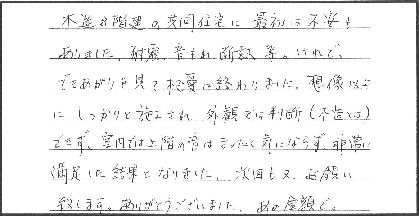 木造3階建の共同住宅に 最初は不安も
ありました。耐震、音もれ、断熱 等。けれど、
できあがりを見て 杞憂に終わりました。想像以上
に しっかりと施工され 外観では判断(木造とは)
できず、室内では上階の音はまったく気にならず、非常に
満足した結果となりました。次回も又、お願い
致します。ありがとうございました。あの金額で。